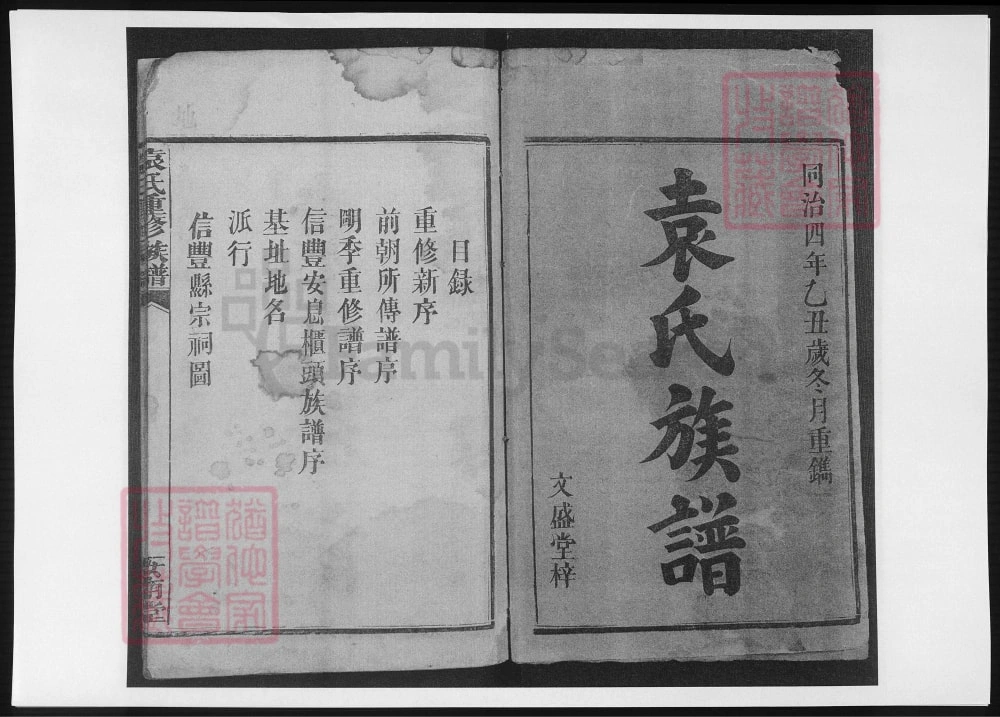 同治四年乙丑歲冬月重鐫
袁氏族譜
文盛堂梓
目録
重修新序
前朝所傳譜序
明季重修譜序
信豐安息櫃頭族譜序
基址地名
派行
信豐縣宗祠圖
袁氏重修族譜
FamilySe